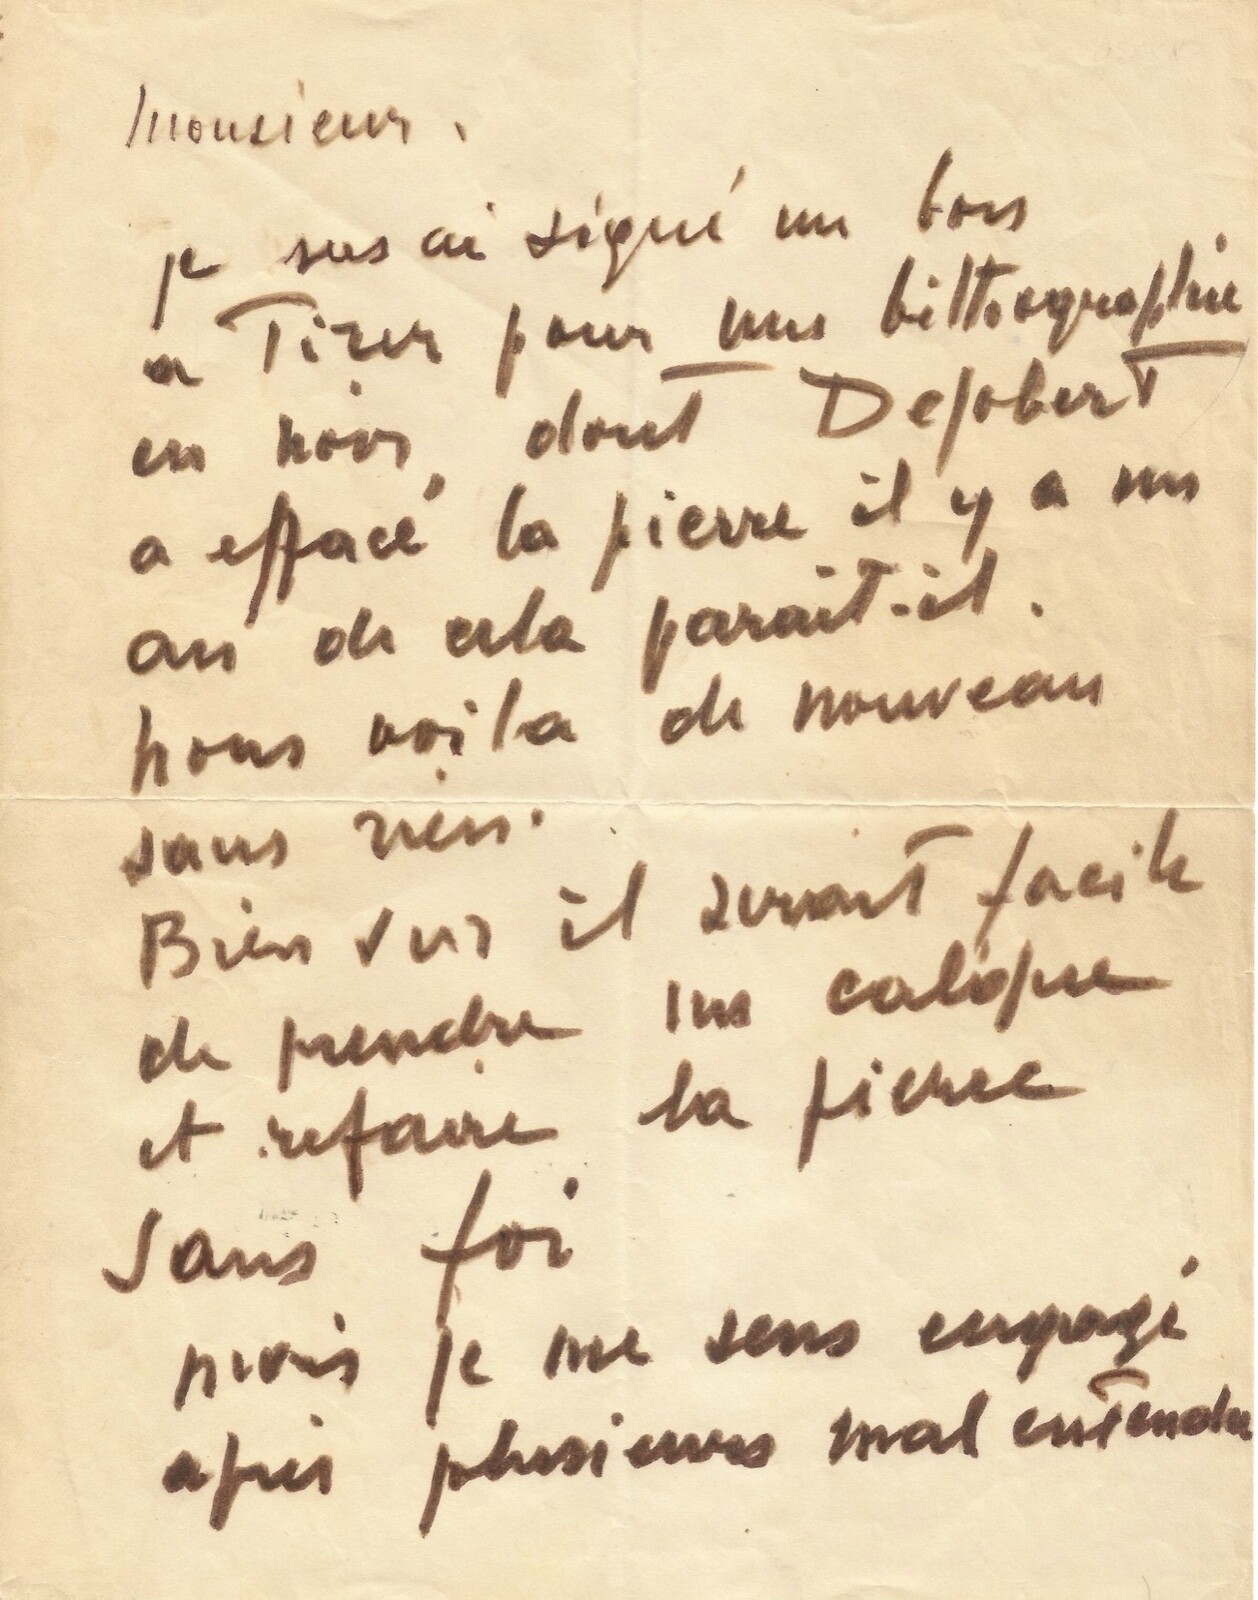 Monsieur.
je vous ai signé un bons
a Tirer pour une lithographie
en noir, dont Dejobert
a effacé la pierre il y a un
an de cela parait-il.
nous voila de nouveau
sans rien.
Bien sur il serait facile
de prendre un calque
et refaire la pierre
Sans foi
mais je me sens engagé
après plusieurs mal entendu